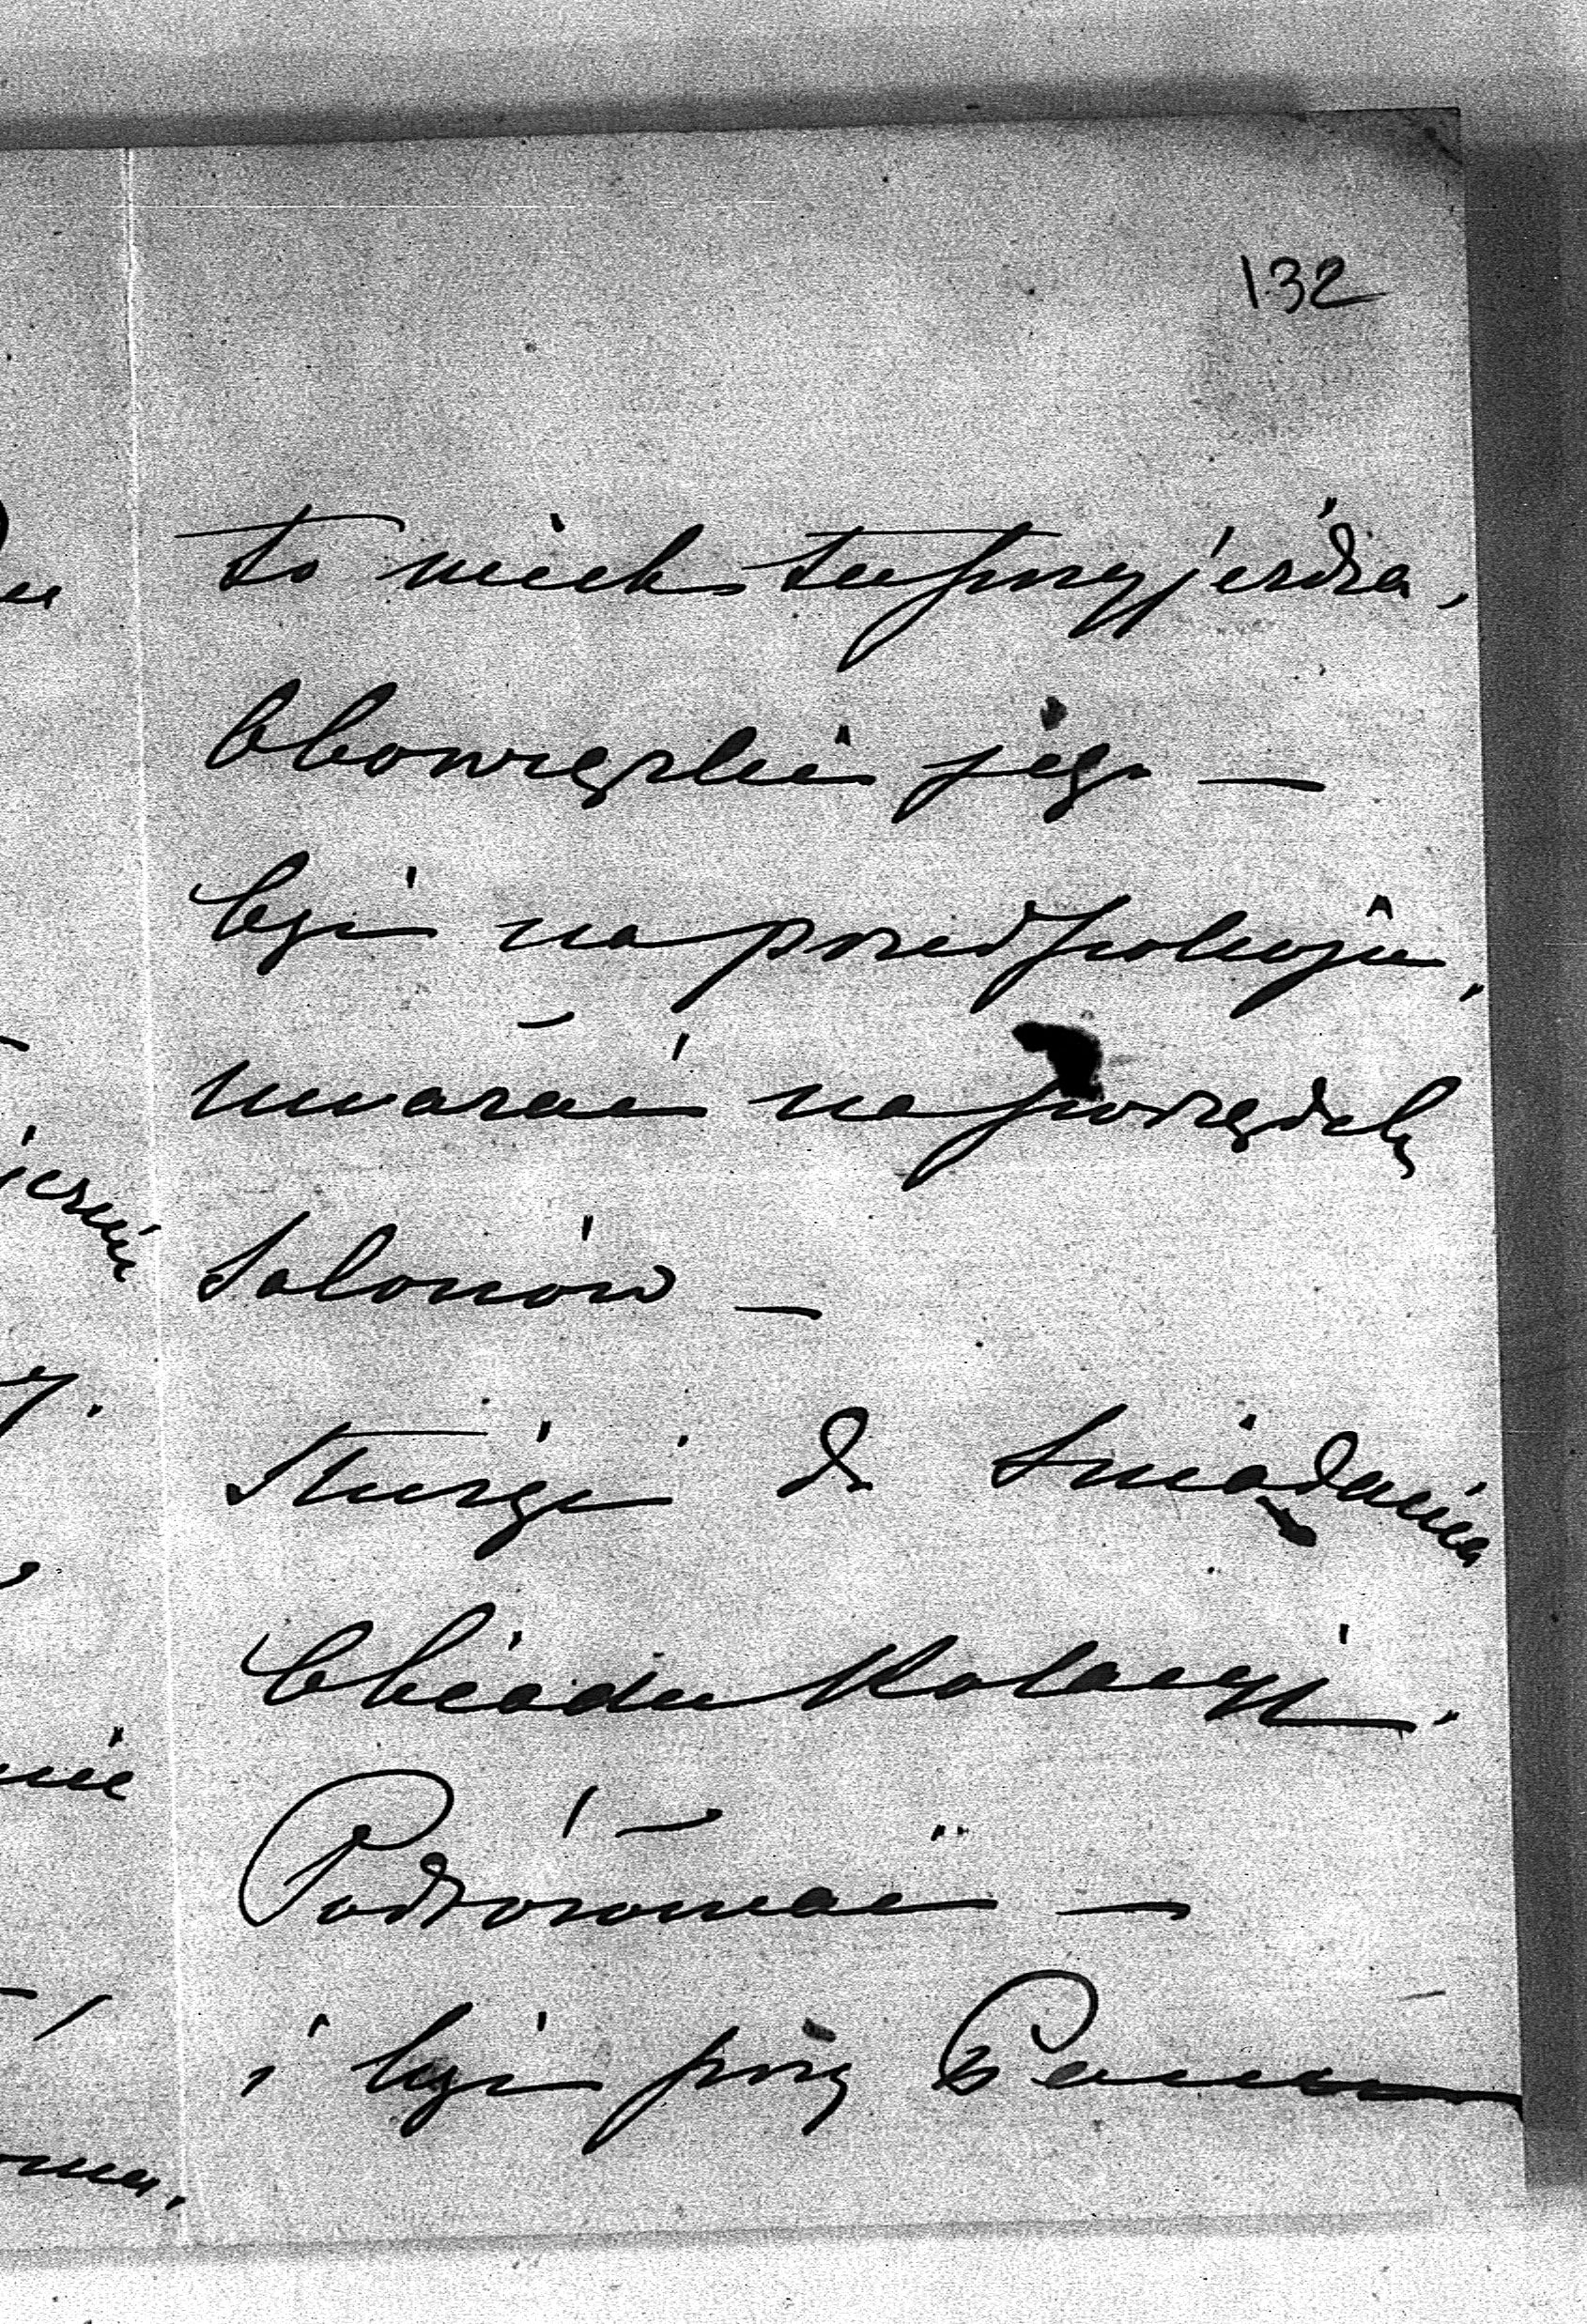 132
to niech tu przyjeżdża,
Obowiązki jego —
być na przedpokoju,
uważać na porządek
Salonów —
Służyć do Śniadania
Obiadu Kolacyi.
Podróżować —
i być przy Panu